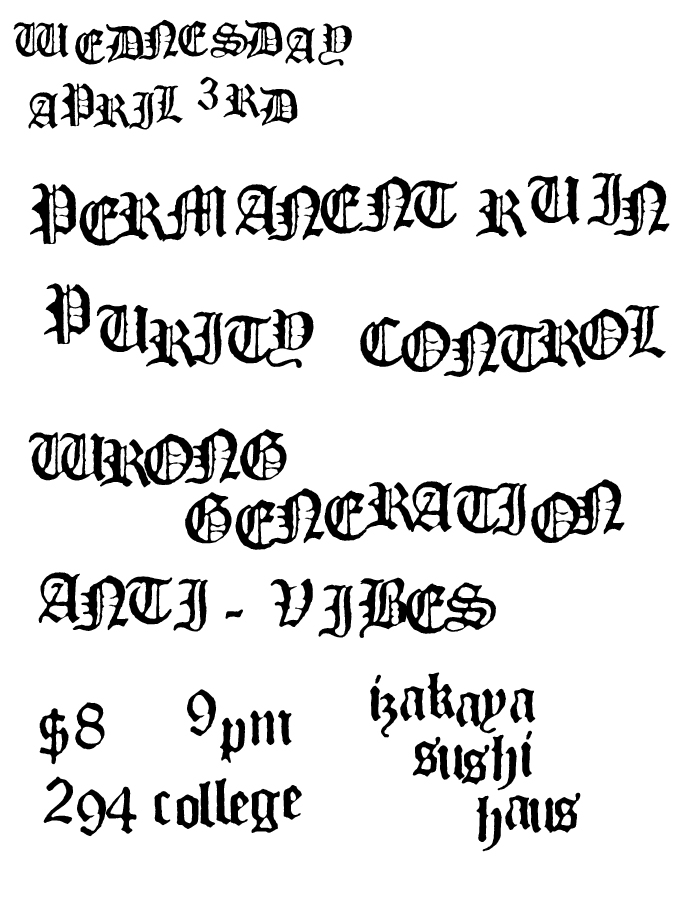 WEDNESDAY
APRIL 3RD
PERMANENT RUIN
PURITY CONTROL
WRONG
GENERATION
ANTI - VIBES
$8 9pm
294 college
izakaya
sushi
haus